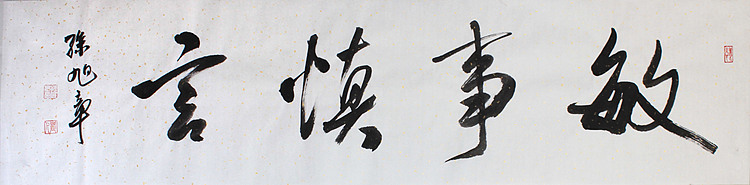 敏事慎言
孫旭章